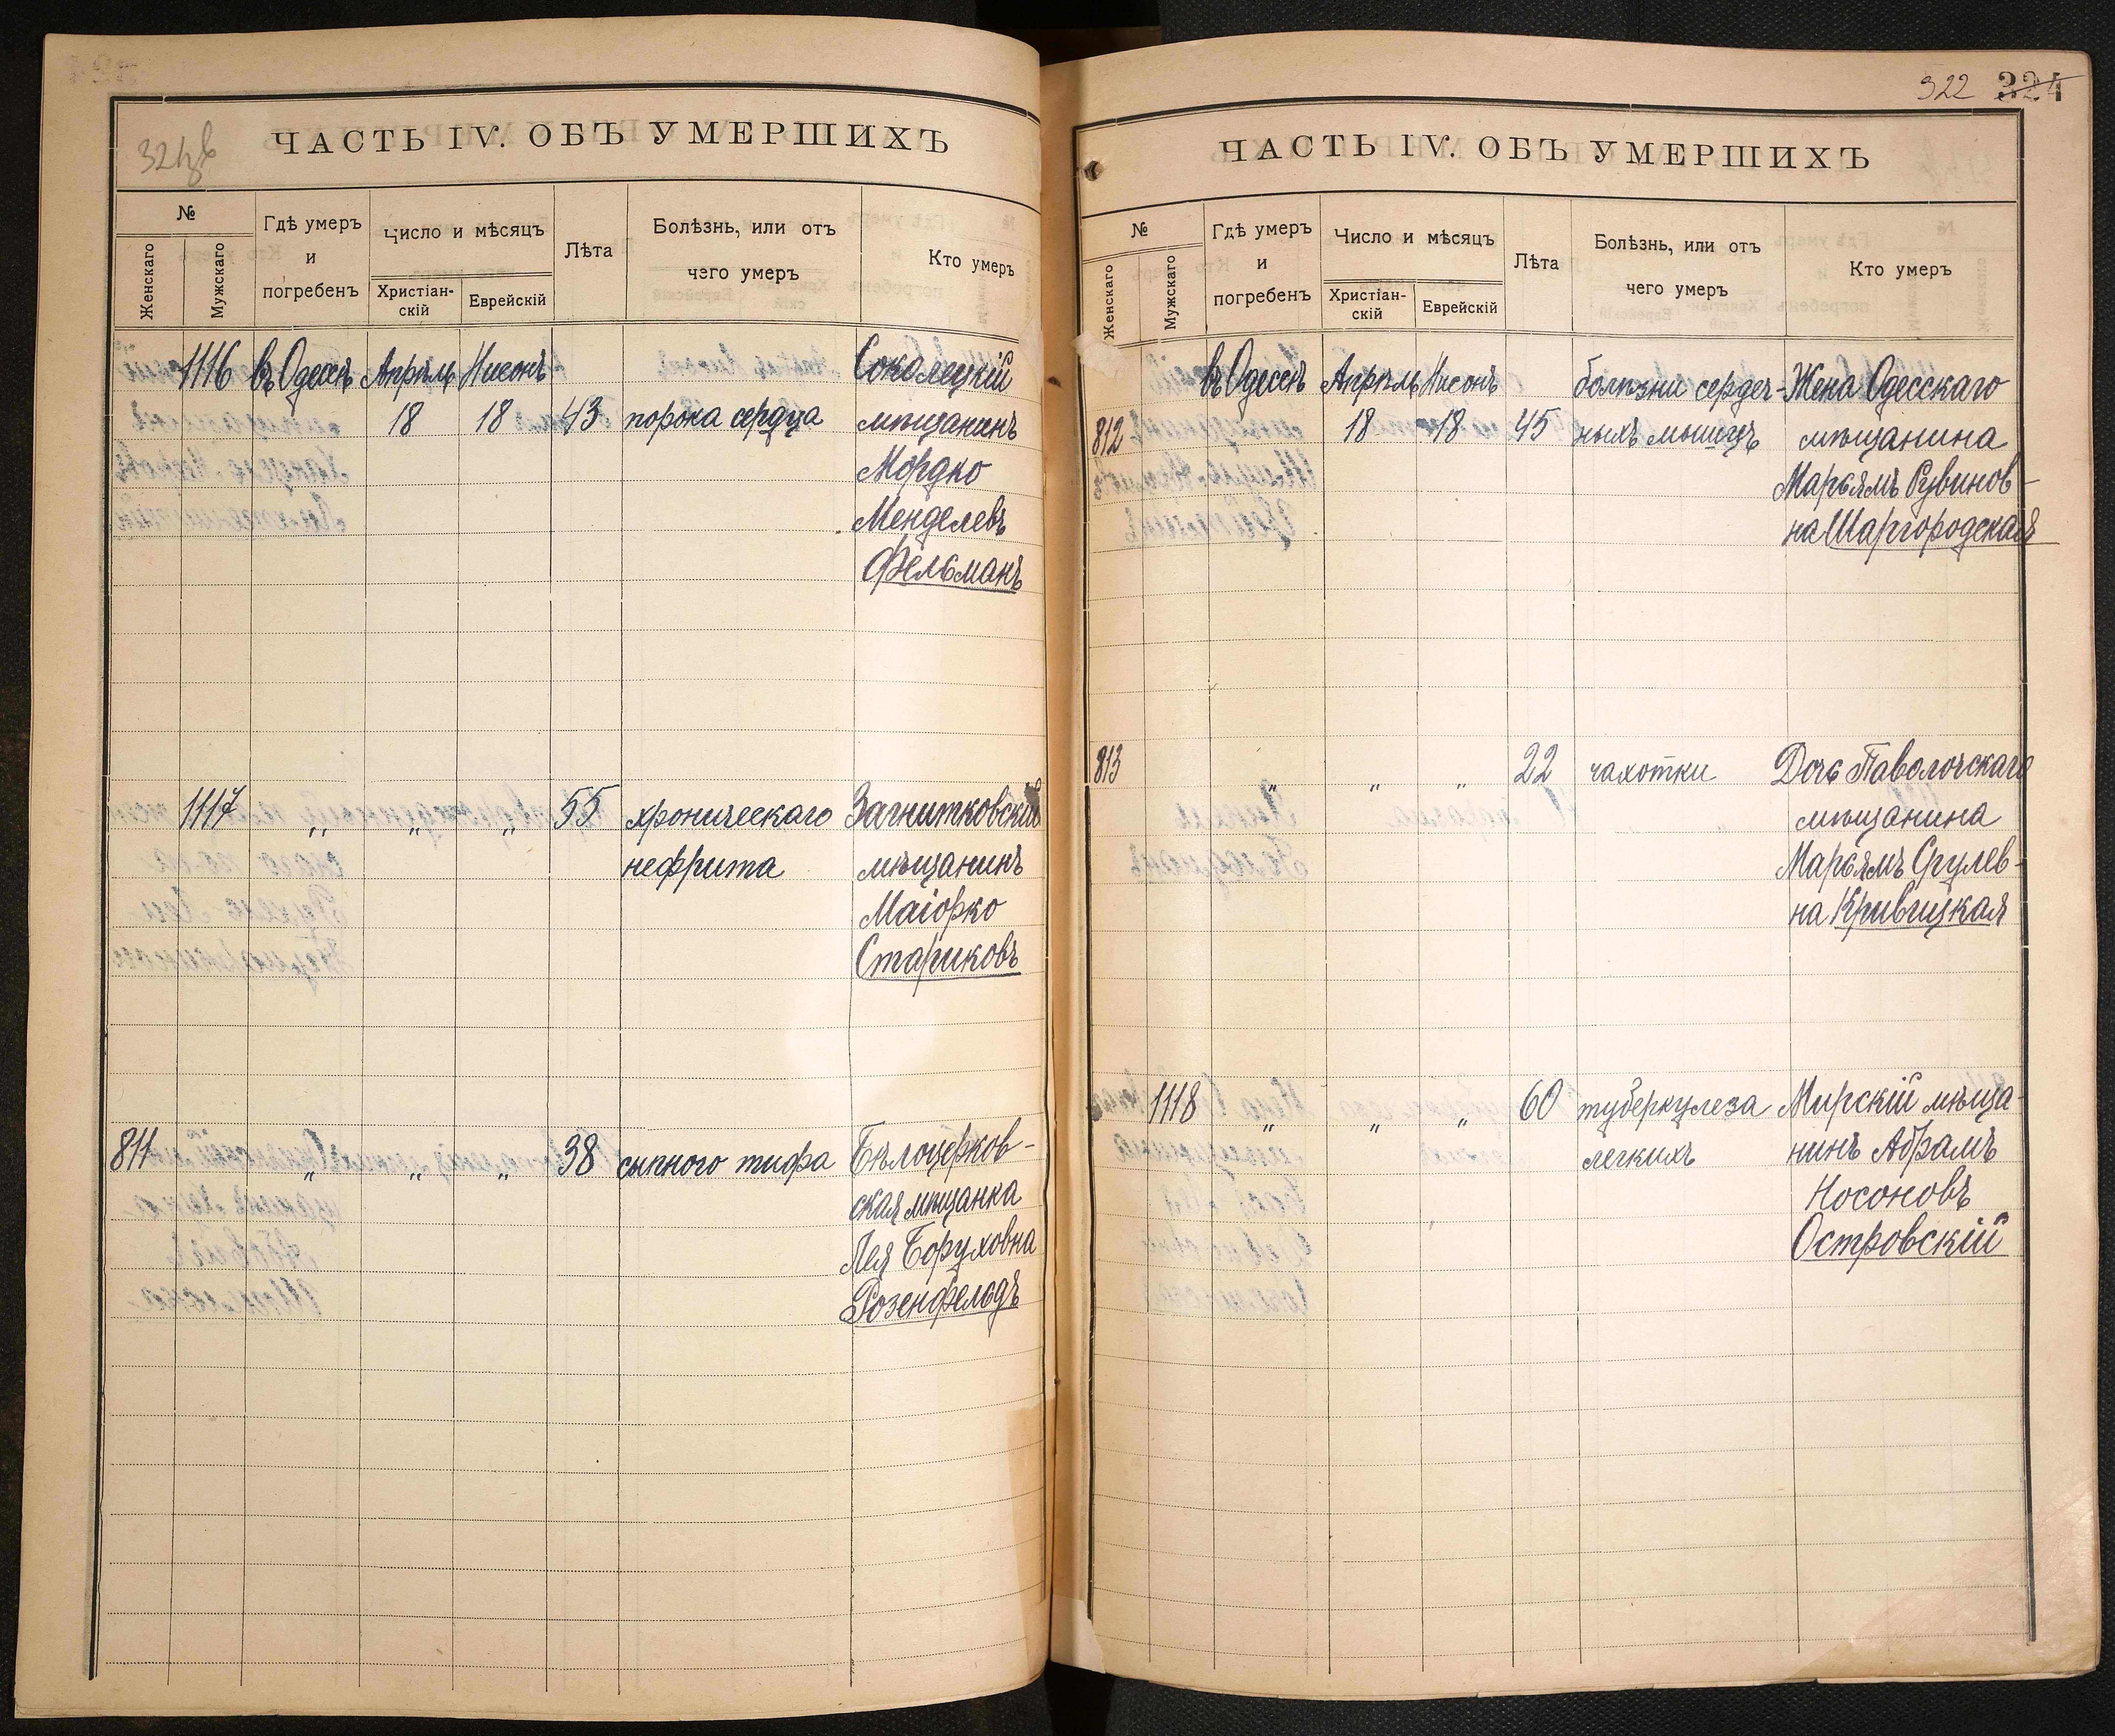 ЧАСТЬ IV. ОБЪ УМЕРШИХЪ
№
Женскаго
Мужскаго
Гдѣ умеръ
и
погребенъ
Число и мѣсяцъ
Христіан-
скій
Еврейскій
Лѣта
Болѣзнь, или отъ
чего умеръ
Кто умеръ
1116 въ Одессѣ Апрѣль Нисонъ Соколецкій
18 18 43 порока сердца мѣщанинъ
Мордко
Менделевъ
Фельманъ
1117 „ „ „ 55 хроническаго Загнитковскій
нефрита мѣщанинъ
Маіорко
Стариковъ
811 „ „ „ 38 сыпного тифа Бѣлоцерков-
ская мѣщанка
Лея Боруховна
Розенфельдъ
322 324
ЧАСТЬ IV. ОБЪ УМЕРШИХЪ
№
Женскаго
Мужскаго
Гдѣ умеръ
и
погребенъ
Число и мѣсяцъ
Христіан-
скій
Еврейскій
Лѣта
Болѣзнь, или отъ
чего умеръ
Кто умеръ
въ Одессѣ Апрѣль Нисонъ болѣзни сердеч- Жена Одесскаго
812 18 18 45 ныхъ мышцъ мѣщанина
Марьямъ Рувинов-
на Шаргородская
813 „ „ „ 22 чахотки Дочь Паволочскаго
мѣщанина
Марьямъ Срулев-
на Кривицкая
1118 „ „ „ 60 туберкулеза Мирскій мѣща-
легкихъ нинъ Абрамъ
Носоновъ
Островскій